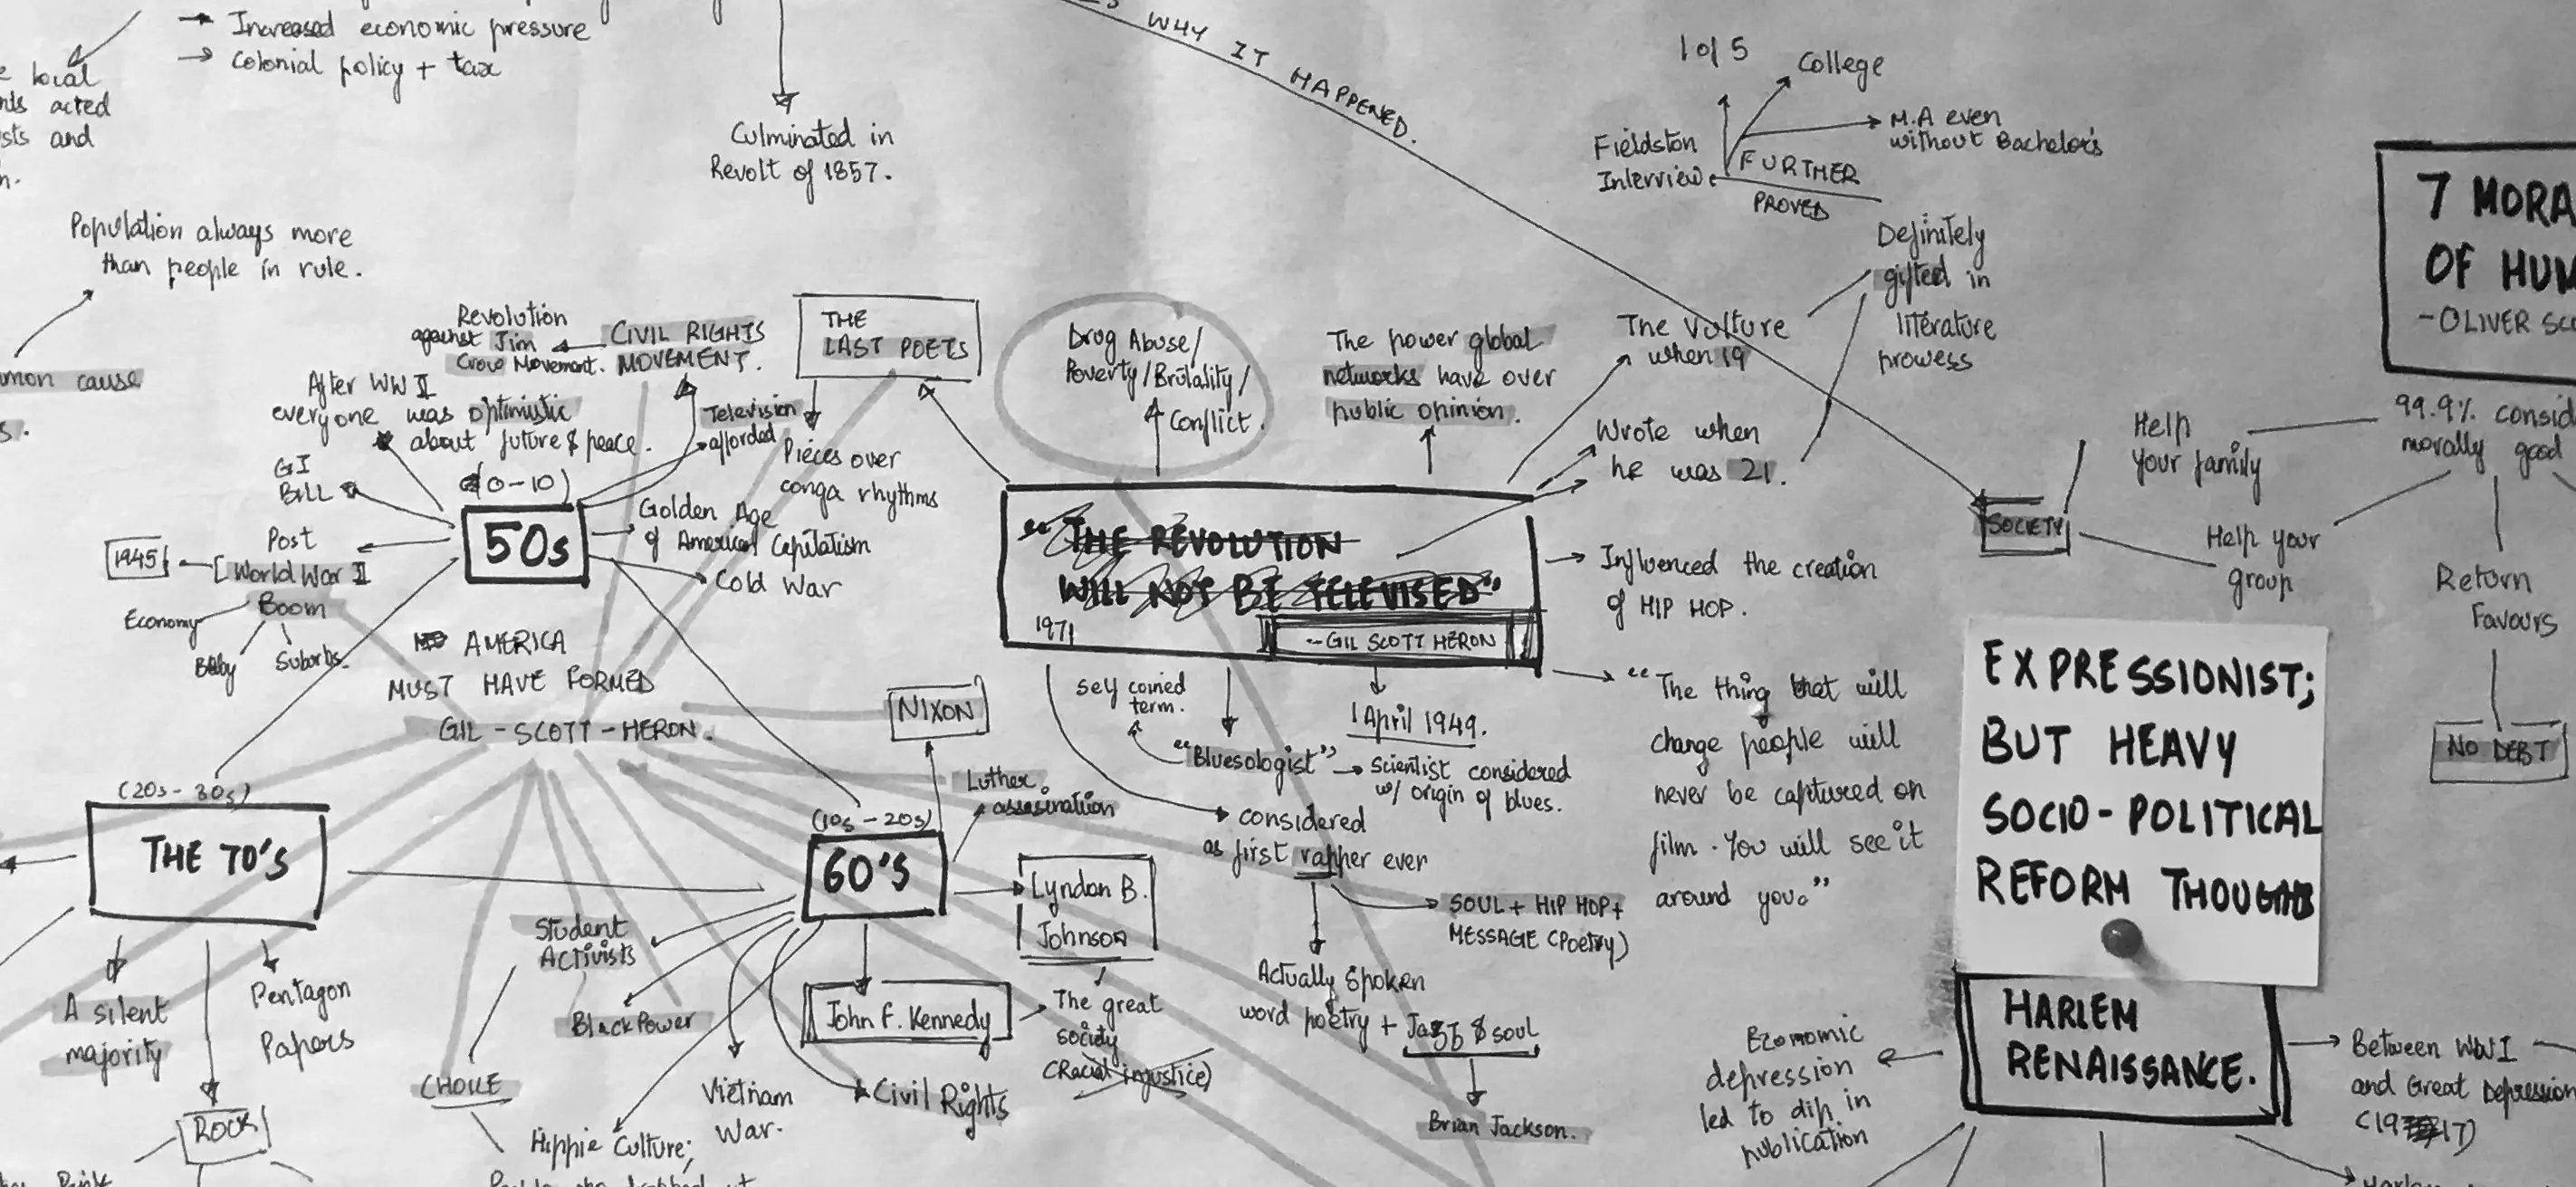 → Increased economic pressure
→ Colonial policy + tax
local
acted
and
Culminated in
Revolt of 1857.
WHY IT HAPPENED.
1 of 5
College
M.A even
without Bachelor's
Fieldston
Interview.
FURTHER
PROVED
Definitely
gifted in
literature
prowess
7 MORA
OF HUM
- OLIVER SC
Population always more
than people in rule.
cause
Revolution
against Jim
Crow Movement.
CIVIL RIGHTS
MOVEMENT.
THE
LAST POETS
Drug Abuse/
Poverty/Brutality/
Conflict.
The power global
networks have over
public opinion.
The Vulture
when 19
Wrote when
he was 21.
After WW II
everyone was optimistic
about future & peace.
Television
afforded
Pieces over
conga rhythms
GI
BILL
(0-10)
50s
Golden Age
of American Capitalism
Cold War
1945
Post
World War II
Boom
Economy
Baby
Suburbs.
"THE REVOLUTION
WILL NOT BE TELEVISED"
1971
-- GIL SCOTT HERON
Influenced the creation
of HIP HOP.
SOCIETY
Help
your family
99.9% consid
morally good
Help your
group
Return
Favours
NO DEBT
AMERICA
MUST HAVE FORMED
GIL - SCOTT - HERON.
NIXON
self coined
term.
"Bluesologist"
1 April 1949.
Scientist considered
w/ origin of blues.
"The thing that will
change people will
never be captured on
film. You will see it
around you."
EXPRESSIONIST;
BUT HEAVY
SOCIO-POLITICAL
REFORM THOUGHTS
(20s - 30s)
THE 70'S
(10s - 20s)
60'S
Luther
assasination
Lyndon B.
Johnson
considered
as first rapher ever
SOUL + HIP HOP +
MESSAGE (Poetry)
Student
Activists
Black Power
John F. Kennedy
The great
society
(Racial injustice)
Actually spoken
word poetry + Jazz & soul
Brian Jackson.
A silent
majority
Pentagon
Papers
ROCK
CHOICE
Hippie Culture;
Vietnam
War.
Civil Rights
HARLEM
RENAISSANCE.
Economic
depression
led to dip in
publication
Between WWI
and Great Depression